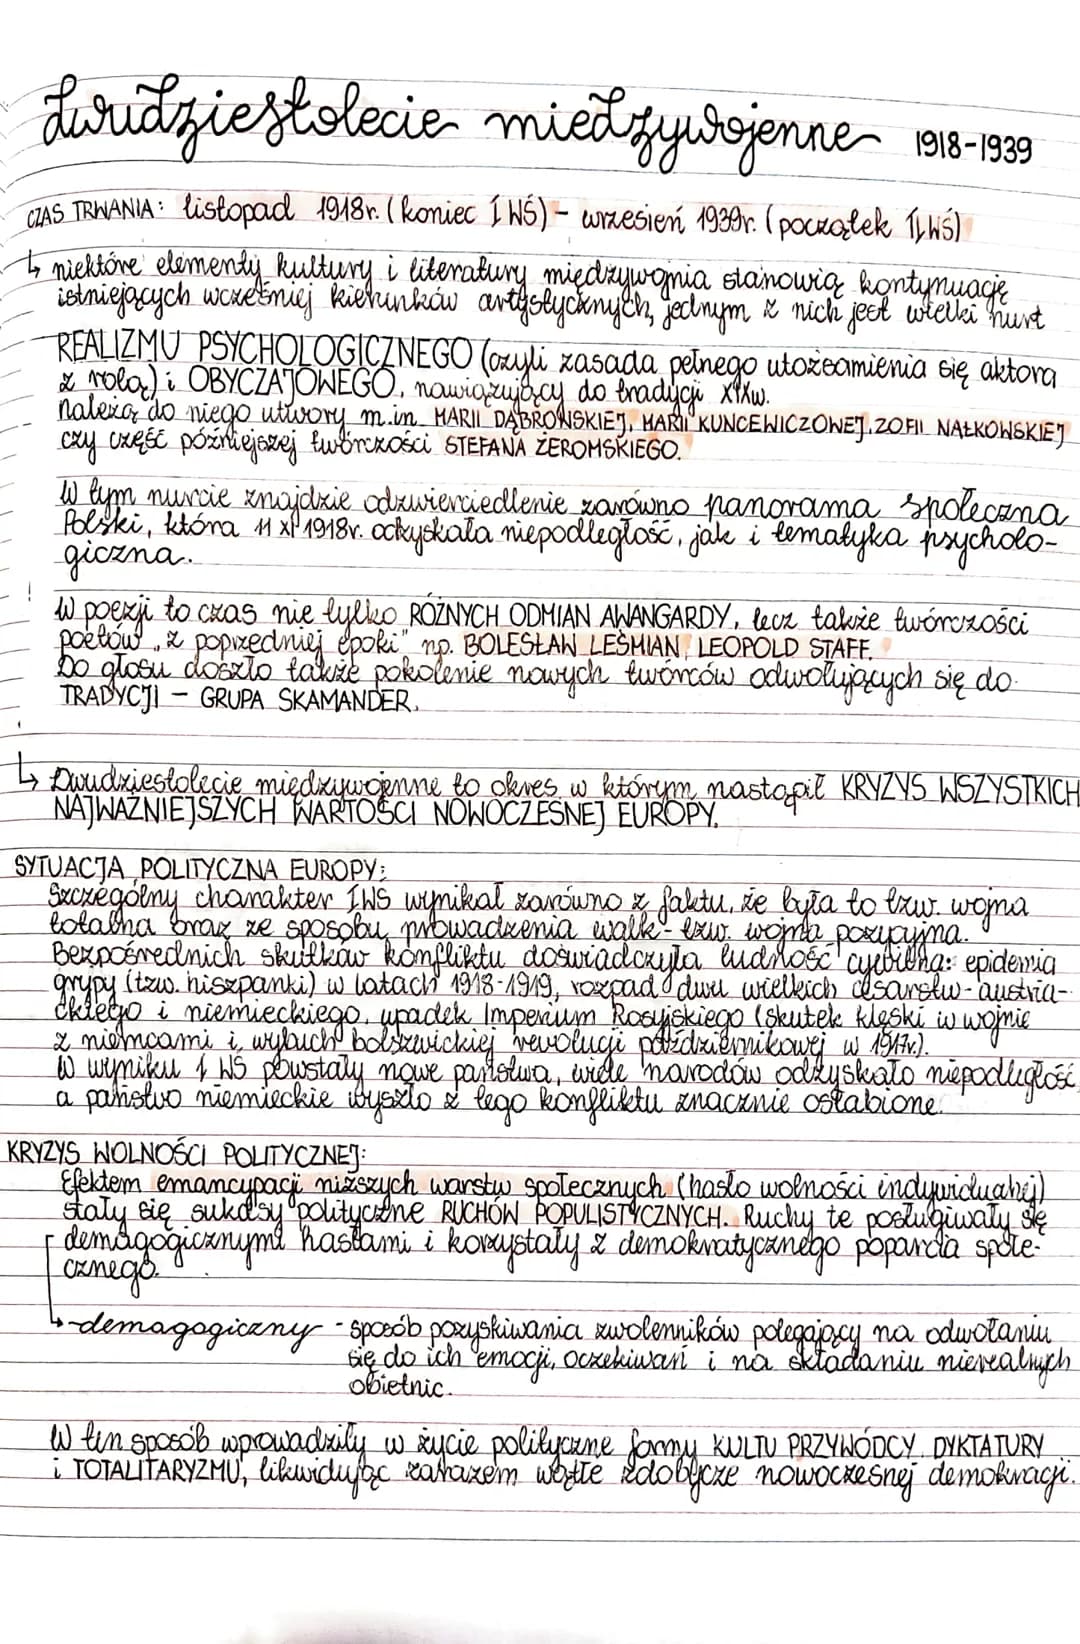 Dwudziestolecie międzywojenne 1918-1939
CZAS TRWANIA: listopad 1918r. (koniec I WŚ) - wrzesień 1939r. (początek II WŚ)
↳ niektóre elementy kultury i literatury międzywojnia stanowią kontynuację
istniejących wcześniej kierunków artystycznych, jednym z nich jest wielki nurt
REALIZMU PSYCHOLOGICZNEGO (czyli zasada pełnego utożsamienia się aktora
z rolą) i OBYCZAJOWEGO, nawiązujący do tradycji XIXw.
Należą do niego utwory m.in. MARII DĄBROWSKIEJ, MARII KUNCEWICZOWEJ, ZOFII NAŁKOWSKIEJ
czy część późniejszej twórczości STEFANA ŻEROMSKIEGO.
W tym nurcie znajdzie odzwierciedlenie zarówno panorama społeczna
Polski, która 11 XI 1918r. odzyskała niepodległość, jak i tematyka psycholo-
giczna.
W poezji to czas nie tylko RÓŻNYCH ODMIAN AWANGARDY, lecz także twórczości
poetów „z poprzedniej epoki" np. BOLESŁAW LEŚMIAN, LEOPOLD STAFF.
Do głosu doszło także pokolenie nowych twórców odwołujących się do
TRADYCJI - GRUPA SKAMANDER.
↳ Dwudziestolecie międzywojenne to okres w którym nastąpił KRYZYS WSZYSTKICH
NAJWAŻNIEJSZYCH WARTOŚCI NOWOCZESNEJ EUROPY.
SYTUACJA POLITYCZNA EUROPY:
Szczególny charakter IWŚ wynikał zarówno z faktu, że była to tzw. wojna
totalna oraz ze sposobu prowadzenia walk - tzw. wojna pozycyjna.
Bezpośrednich skutków konfliktu doświadczyła ludność cywilna: epidemia
grypy (tzw. hiszpanki) w latach 1918-1919, rozpad dwu wielkich cesarstw - austria-
ckiego i niemieckiego, upadek Imperium Rosyjskiego (skutek klęski w wojnie
z niemcami i wybuch bolszewickiej rewolucji październikowej w 1917r.).
W wyniku I WŚ powstały nowe państwa, wiele narodów odzyskało niepodległość,
a państwo niemieckie wyszło z tego konfliktu znacznie osłabione.
KRYZYS WOLNOŚCI POLITYCZNEJ:
Efektem emancypacji niższych warstw społecznych (hasło wolności indywidualnej)
stały się sukcesy polityczne RUCHÓW POPULISTYCZNYCH. Ruchy te posługiwały się
demagogicznymi hasłami i korzystały z demokratycznego poparcia społe-
cznego.
↳ demagogiczny - sposób pozyskiwania zwolenników polegający na odwołaniu
się do ich emocji, oczekiwań i na składaniu nierealnych
obietnic.
W ten sposób wprowadziły w życie polityczne formy KULTU PRZYWÓDCY, DYKTATURY
i TOTALITARYZMU, likwidując zarazem wątłe zdobycze nowoczesnej demokracji.